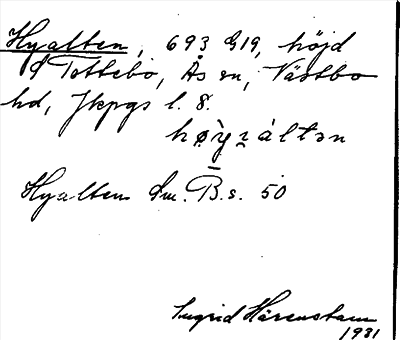 Hyalten, 693 G19, höjd
S Tottebo, Ås sn, Västbo
hd, Jkpgs l. 8.
họ̀yzáltən
Hyalten Sm. B.s. 50
Ingrid Härenstam
1931